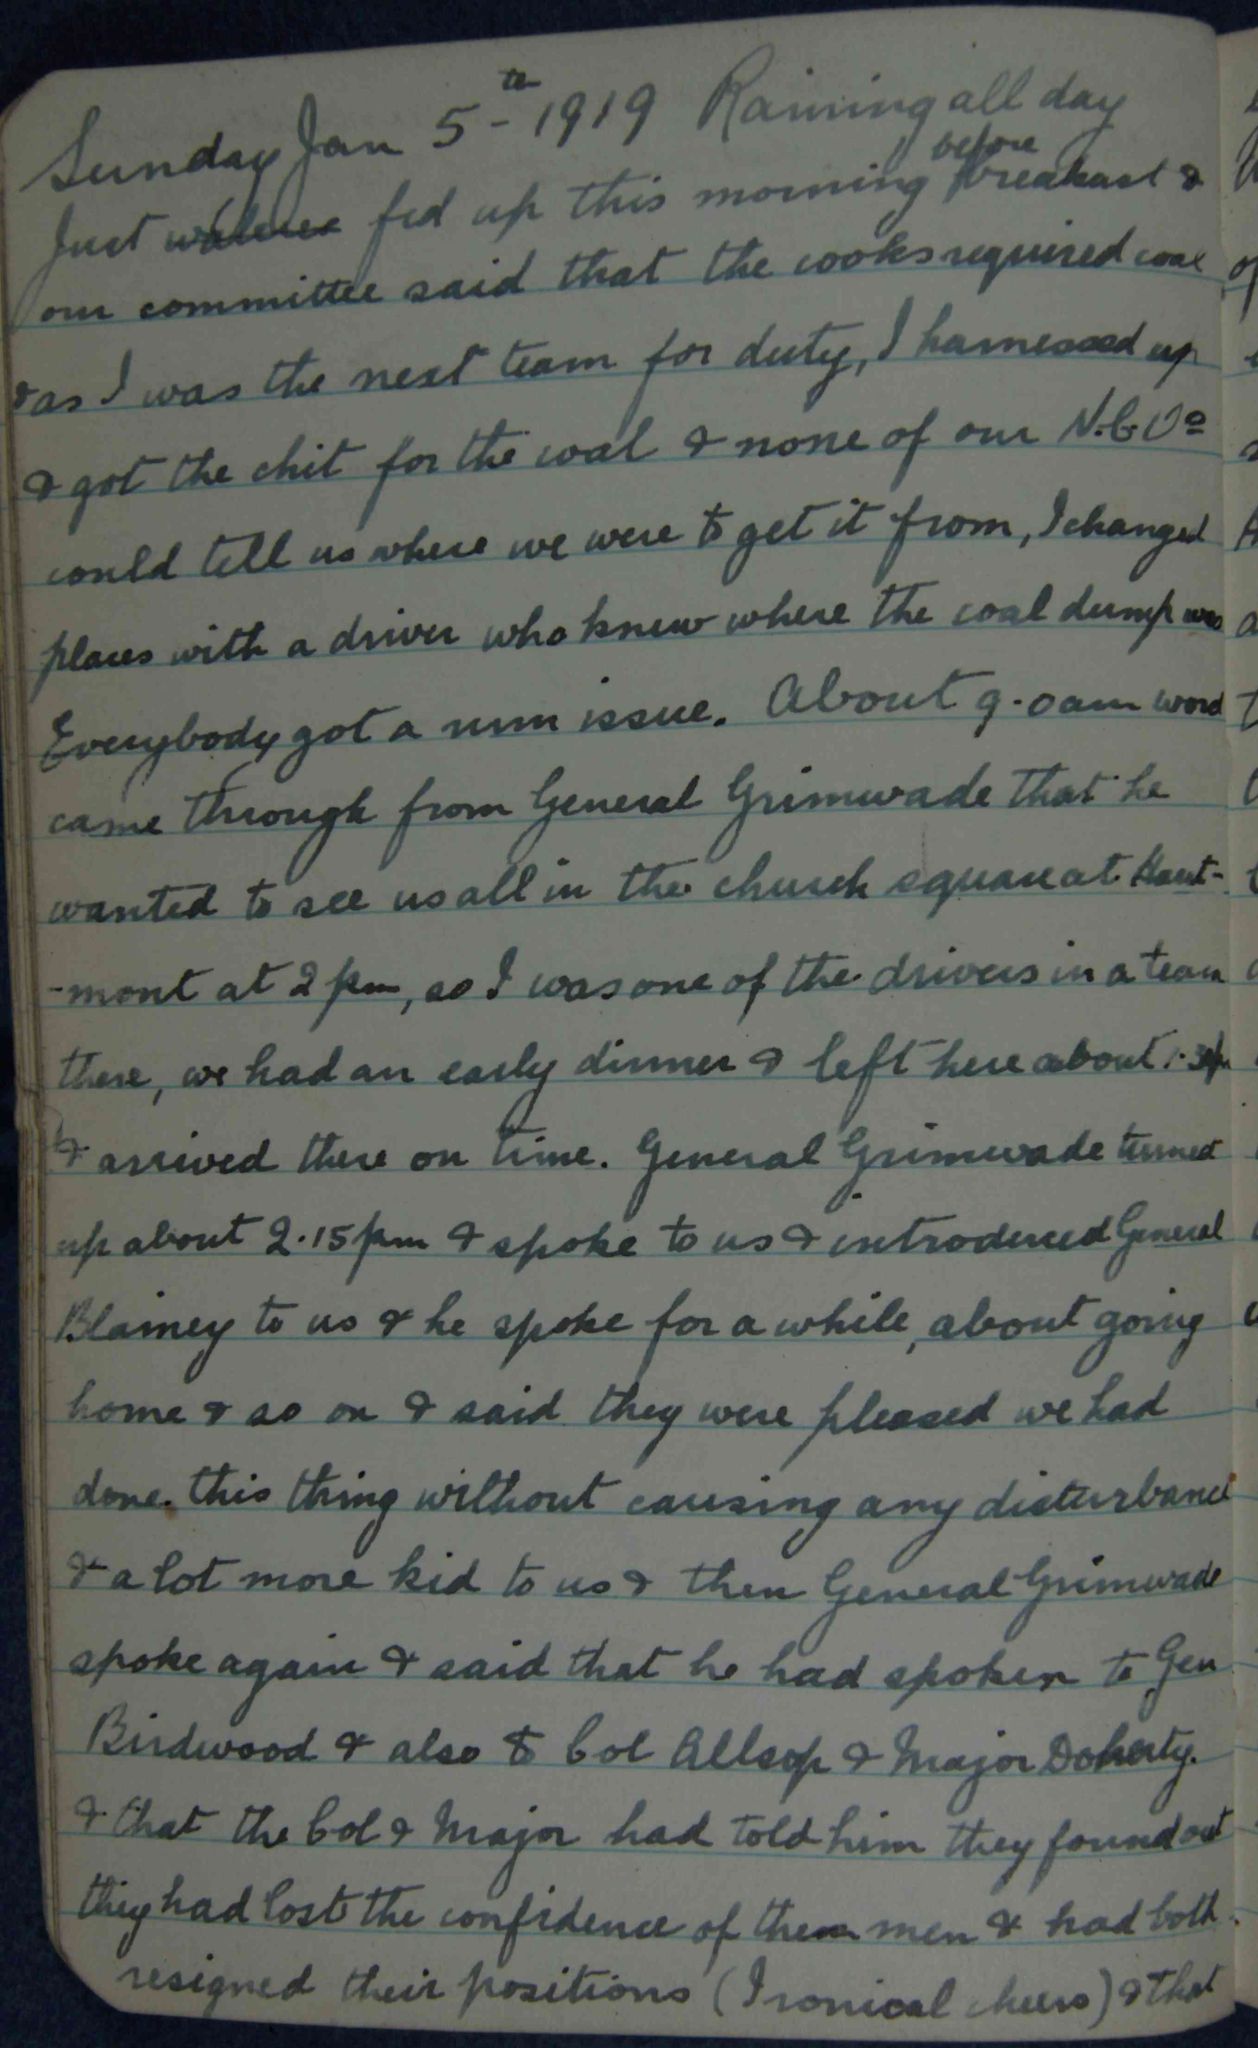 Sunday Jan 5th 1919 Raining all day
Just fed up this morning before breakast &
our committee said that the cooks required coal
& as I was the next team for duty, I harnessed up
& got the chit for the coal & none of our N.C.Os
could tell us where we were to get it from, I changed
places with a driver who knew where the coal dump was
Everybody got a rum issue. About 9.0am word
came through from General Grimwade that he
wanted to see us all in the church square at Haut-
-mont at 2 pm, so I was one of the drivers in a team
there, we had an early dinner & left here about 1.30pm
& arrived there on time. General Grimwade turned
up about 2.15pm & spoke to us & introduced General
Blamey to us & he spoke for a while, about going
home & so on & said they were pleased we had
done this thing without causing any disturbance
& a lot more kid to us & then General Grimwade
spoke again & said that he had spoken to Gen
Birdwood & also to Col Allsop & Major Doherty.
& that the Col & Major had told him they found out
they had lost the confidence of their men & had both
resigned their positions (Ironical cheers) & that